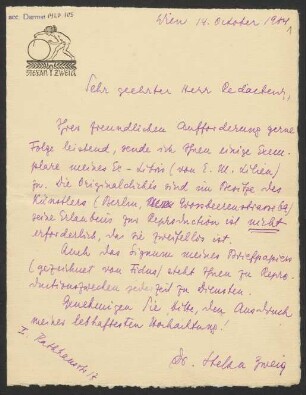 acc. Darmst. 1922.103
Wien 14. Oktober 1904
STEFAN ZWEIG
Sehr geehrter Herr Redacteur,
Ihrer freundlichen Aufforderung gerne
Folge leistend, sende ich Ihnen einige Exem-
plare meines Ex-Libris (von E. M. Lilien)
zu. Die Originalclichés sind im Besitze des
Künstlers (Berlin, Grossbeerenstrasse 69)
seine Erlaubnis zur Reproduction ist nicht
erforderlich, da sie zweifellos ist.
Auch das Signum meines Briefpapiers
(gezeichnet von Fidus) steht Ihnen zu Repro-
ductionszwecken jederzeit zu Diensten.
Genehmigen Sie, bitte, den Ausdruck
meiner lebhaftesten Hochachtung!
Dr. Stefan Zweig
I. Rathhausstr. 17